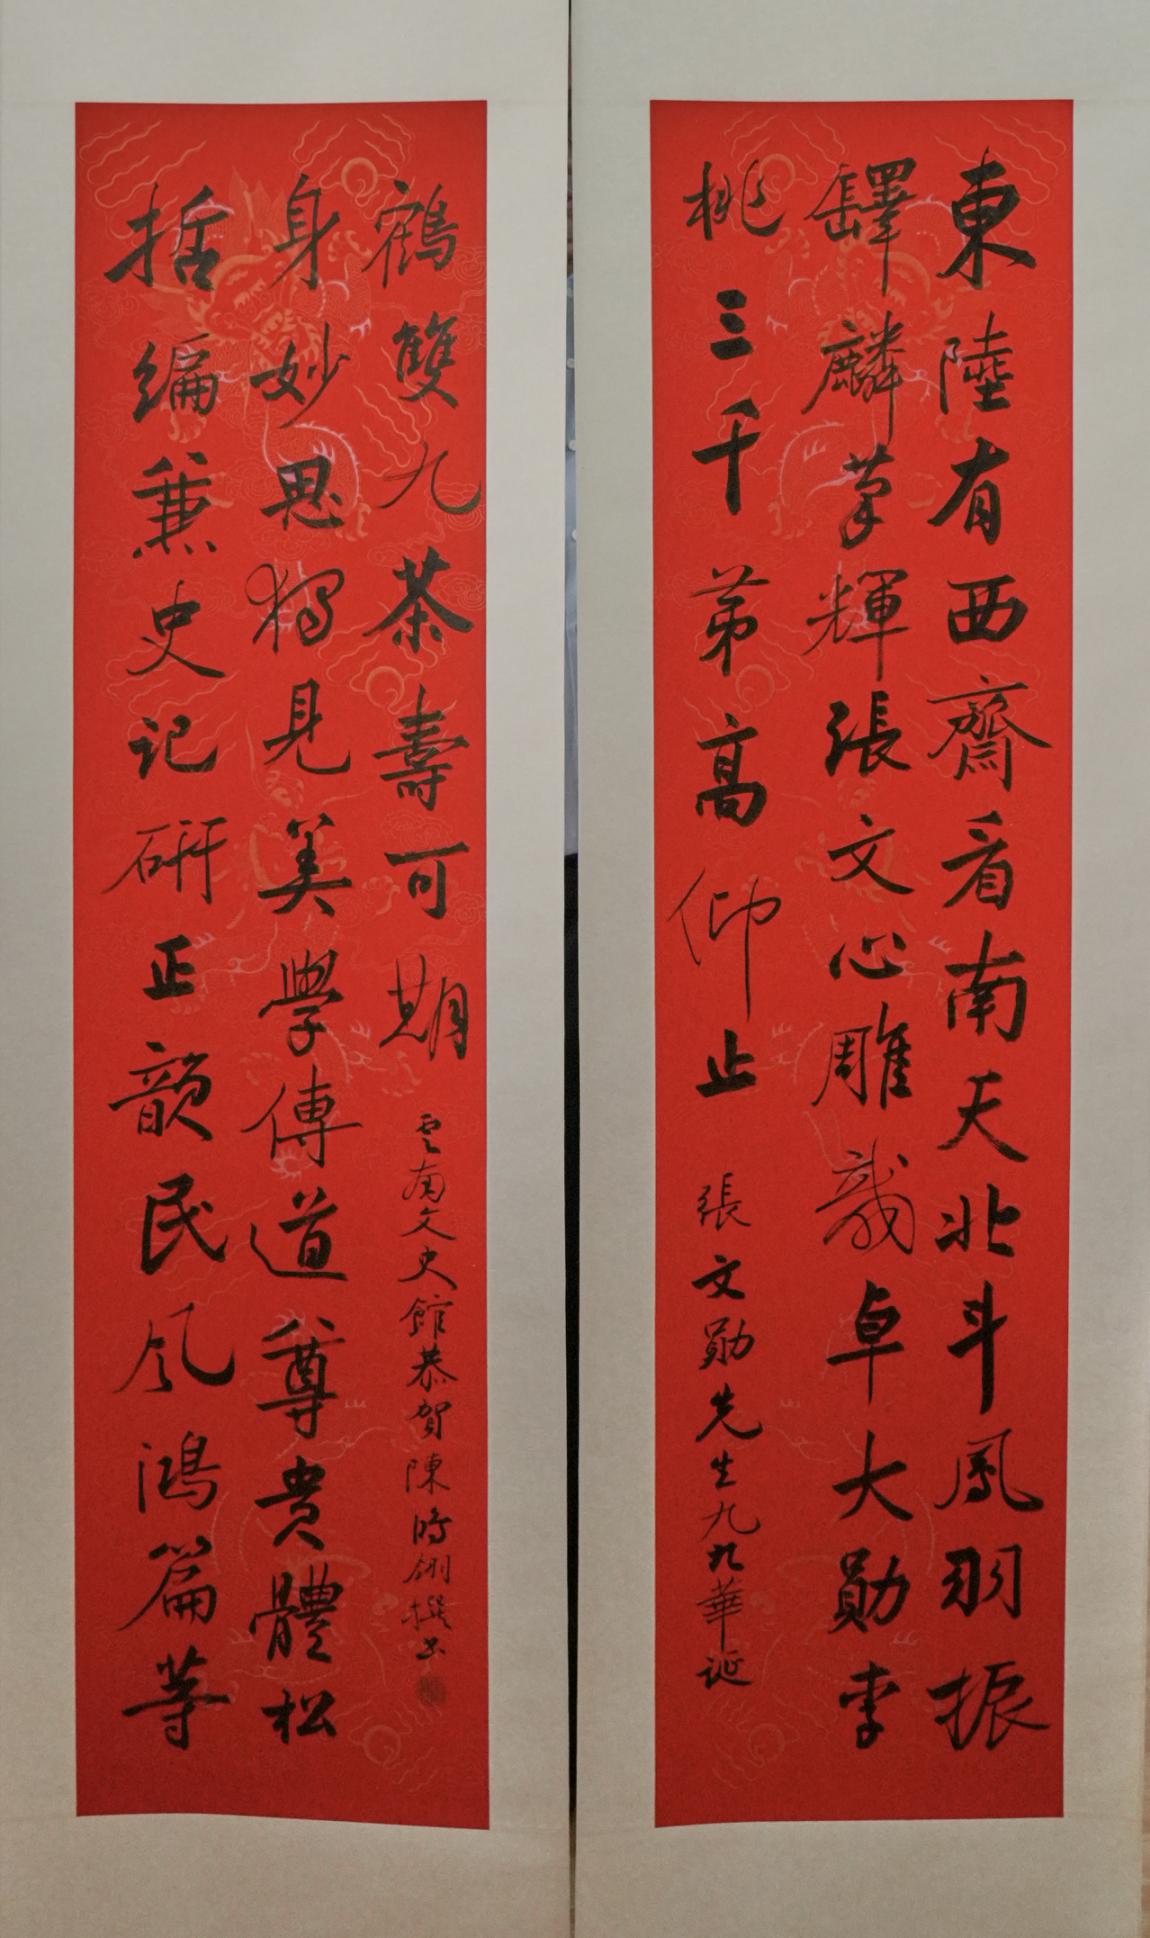 東陸有西齋看南天北斗鳳羽振
鐸麟筆輝張文心雕識卓大勋李
桃三千弟高仰止
張文勋先生九九華诞
括编兼史记研正韻民风鸿篇等
身妙思獨見美學傳道尊贵體松
鶴雙九茶壽可期
雲南文史館恭賀陳撰书